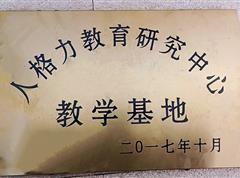 人格力教育研究中心
教学基地
二〇一七年十月